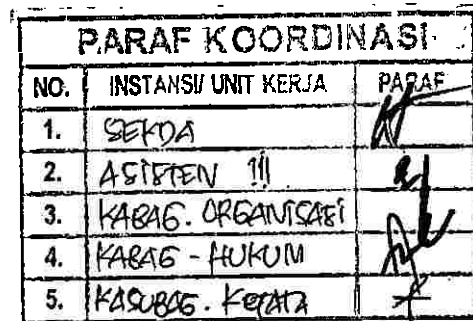 PARAF KOORDINASI
NO. INSTANSI/ UNIT KERJA PARAF
1. SEKDA
2. ASISTEN III
3. KABAG. ORGANISASI
4. KABAG - HUKUM
5. KASUBAG.